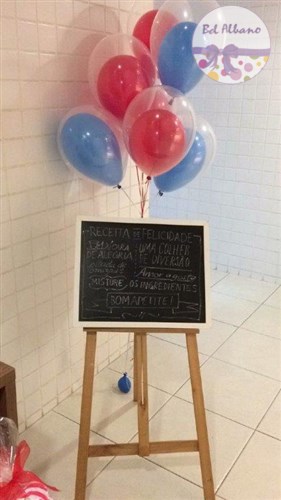 Bel Albano
RECEITA DE FELICIDADE
DE ALEGRIA
UMA COLHER
DE DIVERSÃO
Amor a gosto
MISTURE OS INGREDIENTES
BOM APETITE!